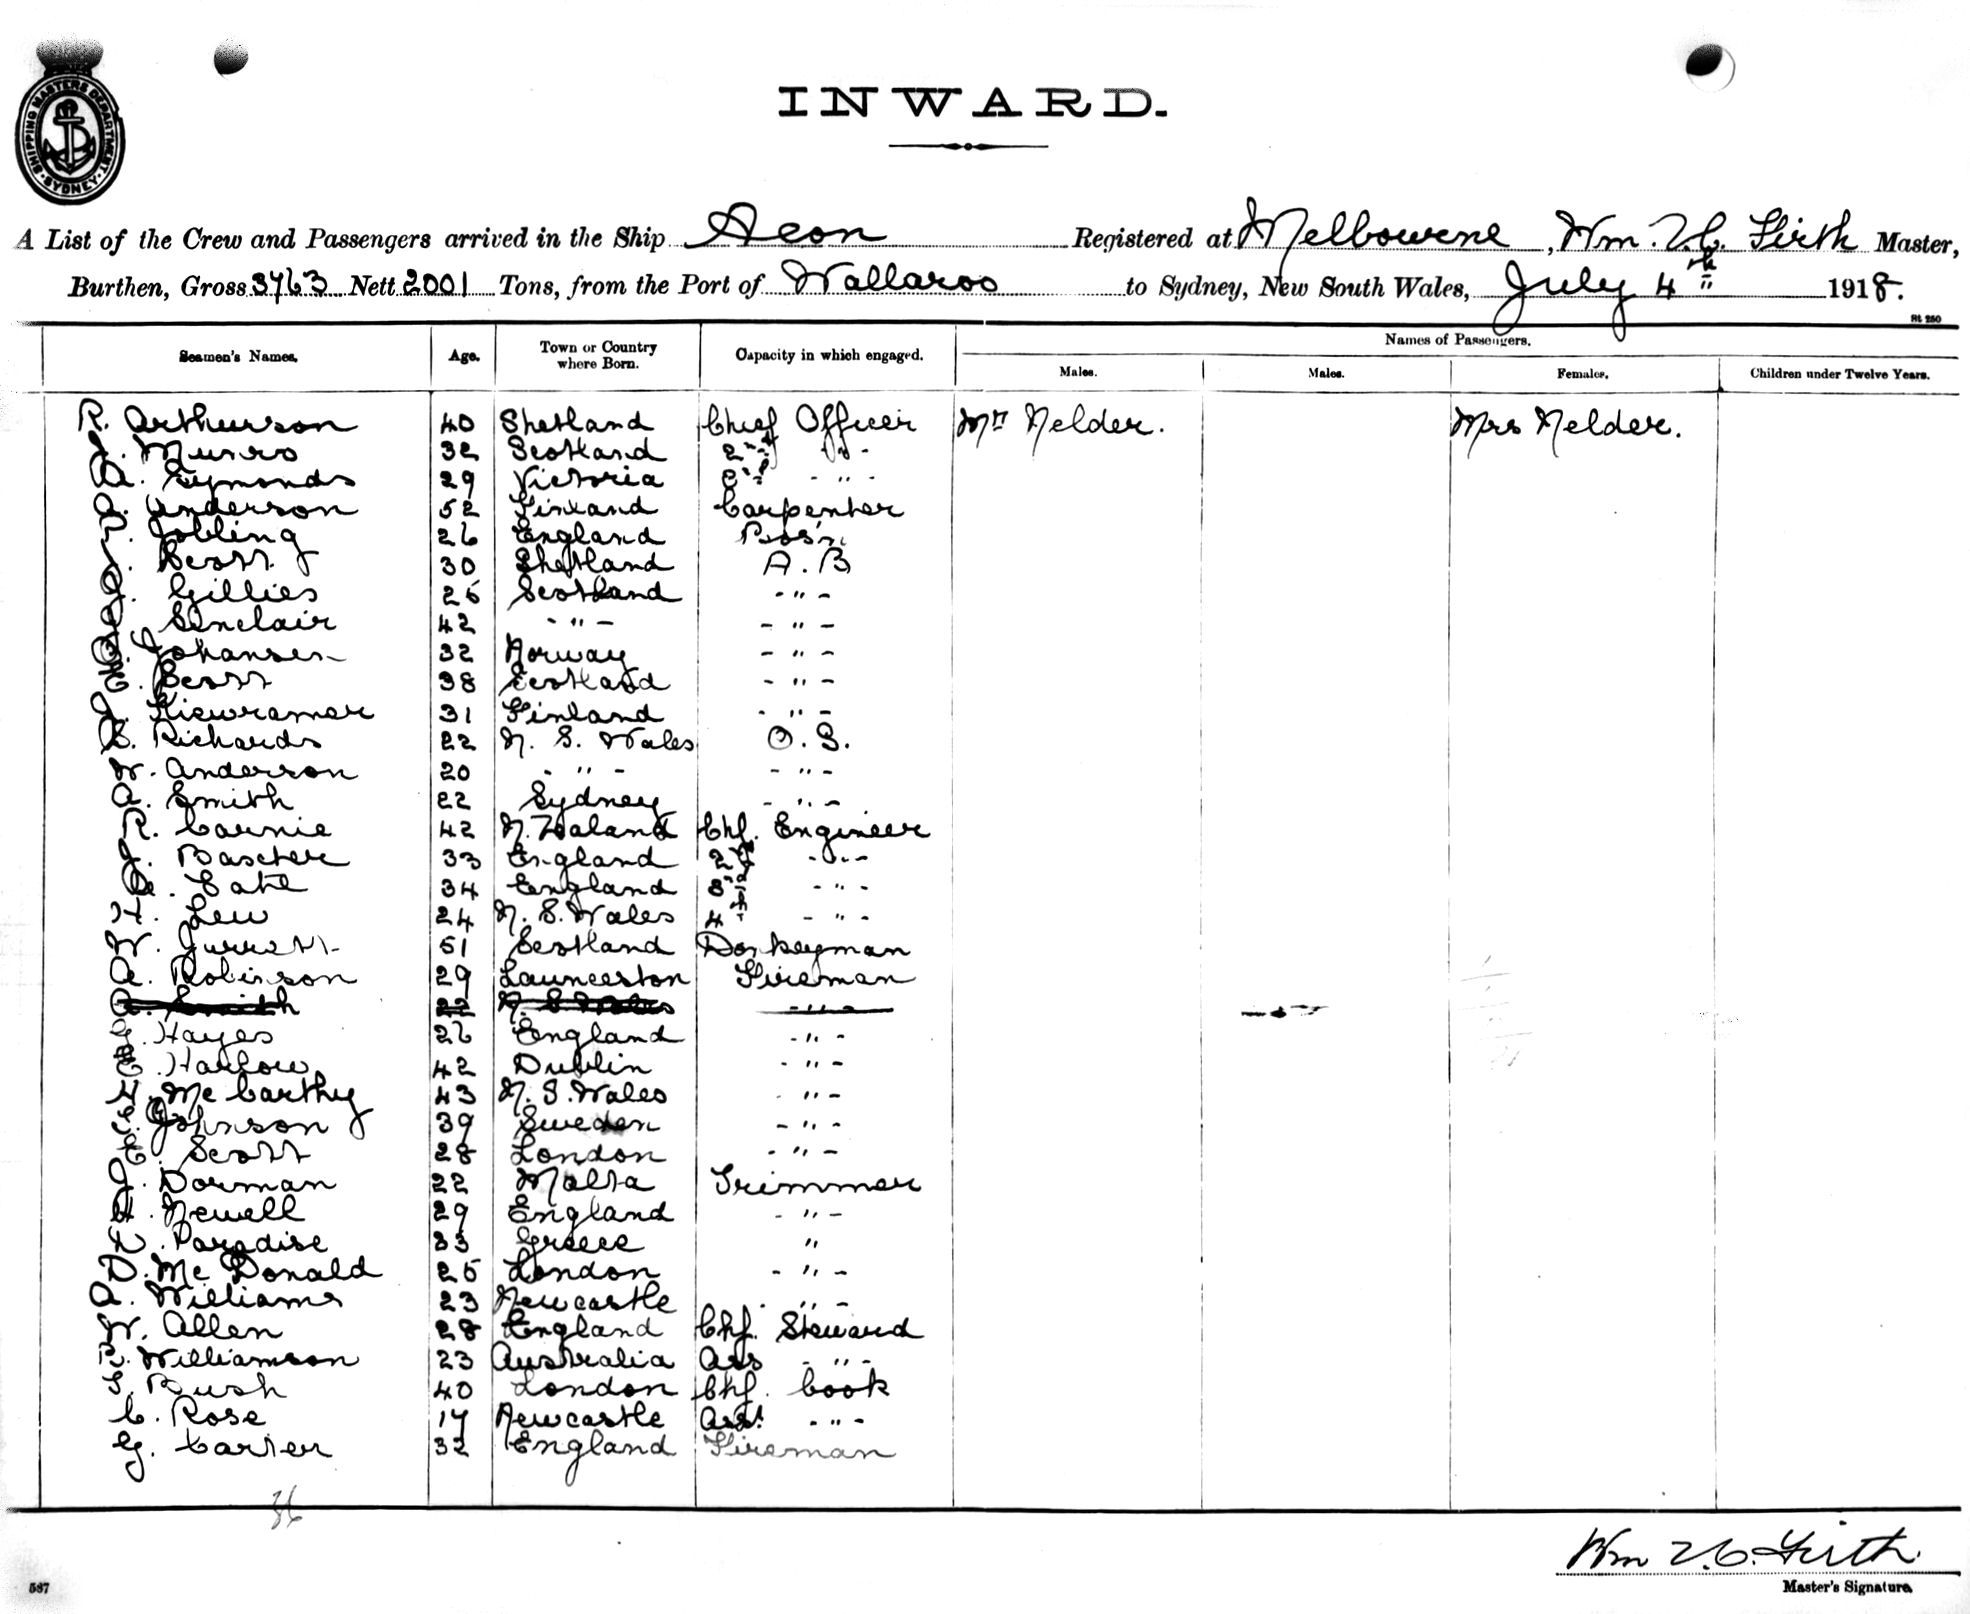 SHIPPING MASTERS DEPARTMENT. SYDNEY.
INWARD.
A List of the Crew and Passengers arrived in the Ship Aeon Registered at Melbourne, Wm. Firth Master,
Burthen, Gross 3763 Nett 2001 Tons, from the Port of Wallaroo to Sydney, New South Wales, July 4th 1918.
Rt 250
Seamen's Names. Age. Town or Country where Born. Capacity in which engaged. Names of Passengers.
Males. Males. Females. Children under Twelve Years.
R. Arthurson 40 Shetland Chief Officer Mr Nelder. Mrs Nelder.
J. Munro 32 Scotland 2nd - " -
A. Symonds 29 Victoria 3rd - " -
Anderson 52 Finland Carpenter
Jobling 26 England Bos'n
J. Scott 30 Shetland A.B
J. Gillies 25 Scotland - " -
J. Sinclair 42 - " - - " -
Johansen 32 Norway - " -
Scott 38 Scotland - " -
J. 31 Finland - " -
Richards 22 N. S. Wales O.S.
W. Anderson 20 - " - - " -
A. Smith 22 Sydney - " -
R. Carnie 42 N. Zealand Chf. Engineer
J. 33 England 2nd - " -
Cate 34 England 3rd - " -
H. Lew 24 N. S. Wales 4th - " -
W. 51 Scotland Donkeyman
A. Robinson 29 Launceston Fireman
A. Smith 22 N. S Wales - " -
G. Hayes 26 England - " -
E. Harlow 42 Dublin - " -
H. McCarthy 43 N. S. Wales - " -
Johnson 39 Sweden - " -
E. Scott 28 London - " -
J. Dorman 22 Malta Trimmer
H. Newell 29 England - " -
Paradise 33 Greece "
D. McDonald 25 London - " -
A. Williams 23 Newcastle - " -
W. Allen 28 England Chf. Steward
R. Williamson 23 Australia Ass - " -
Bush 40 London Chf. Cook
C. Rose 17 Newcastle Asst. - " -
G. Carter 32 England Fireman
36
Wm Firth.
Master's Signature.
537